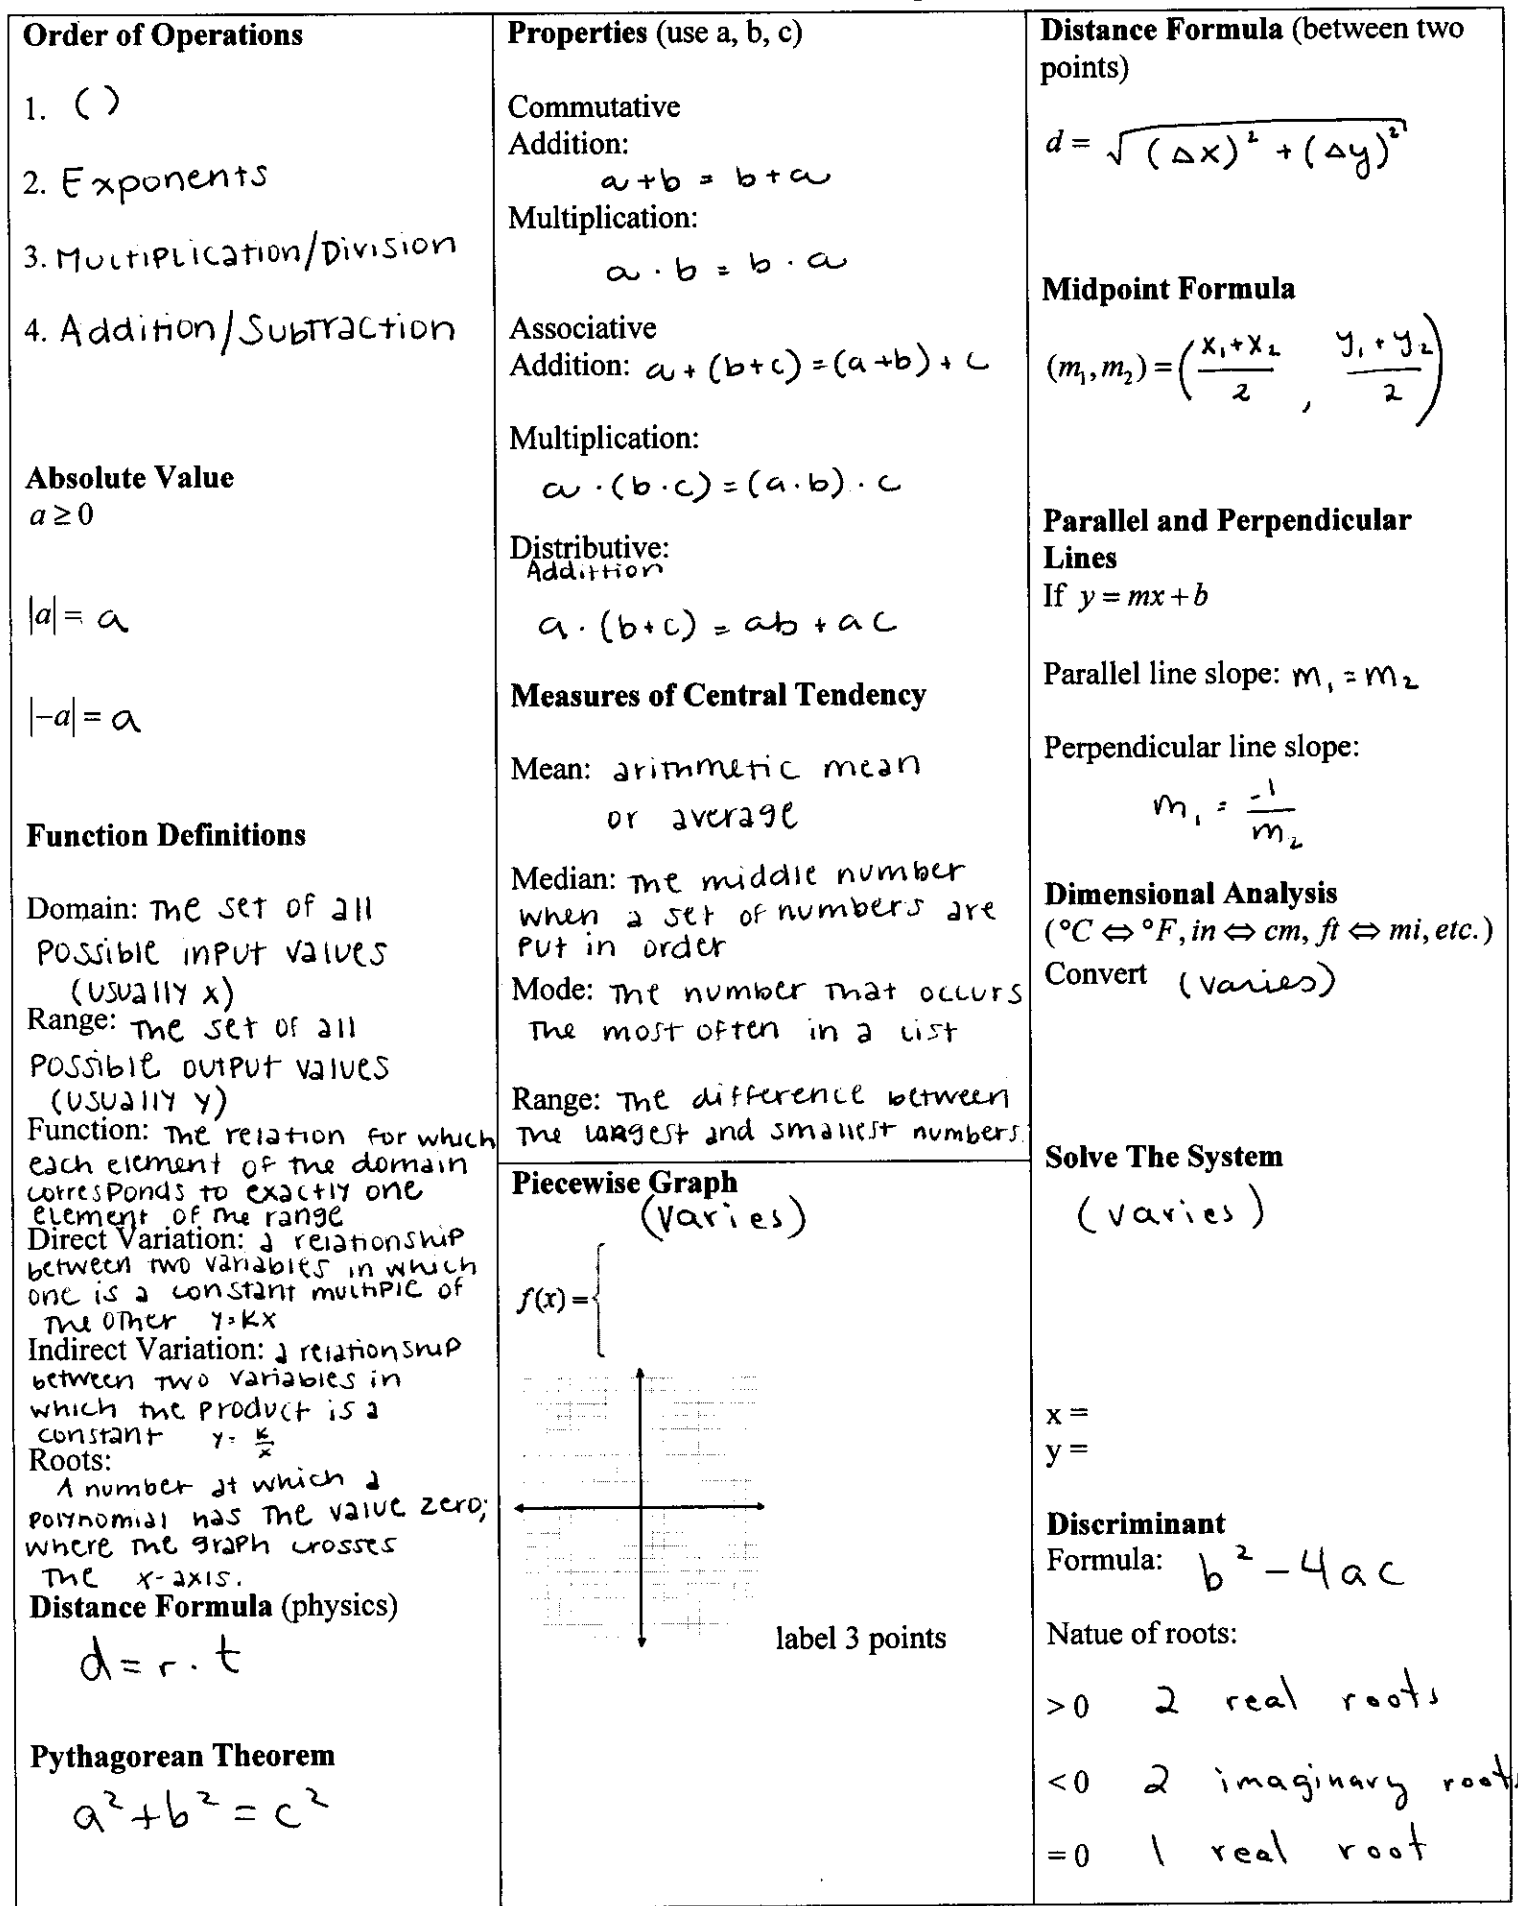 Order of Operations
1. ( )
2. Exponents
3. Multiplication/Division
4. Addition/Subtraction
Absolute Value
a ≥ 0
|a| = a
|−a| = a
Function Definitions
Domain: The set of all
possible input values
(usually x)
Range: The set of all
possible output values
(usually y)
Function: The relation for which
each element of the domain
corresponds to exactly one
element of the range
Direct Variation: a relationship
between two variables in which
one is a constant multiple of
the other y=kx
Indirect Variation: a relationship
between two variables in
which the product is a
constant y= k/x
Roots:
A number at which a
polynomial has the value zero;
where the graph crosses
the x-axis.
Distance Formula (physics)
d = r · t
Pythagorean Theorem
a² + b² = c²
Properties (use a, b, c)
Commutative
Addition:
a + b = b + a
Multiplication:
a · b = b · a
Associative
Addition: a + (b+c) = (a+b) + c
Multiplication:
a · (b·c) = (a·b) · c
Distributive:
Addittion
a · (b+c) = ab + ac
Measures of Central Tendency
Mean: arithmetic mean
or average
Median: The middle number
when a set of numbers are
put in order
Mode: The number that occurs
the most often in a list
Range: The difference between
the largest and smallest numbers.
Piecewise Graph
(varies)
f(x) = {
label 3 points
Distance Formula (between two
points)
d = √((Δx)² + (Δy)²)
Midpoint Formula
(m₁, m₂) = ((x₁+x₂)/2 , (y₁+y₂)/2)
Parallel and Perpendicular
Lines
If y = mx + b
Parallel line slope: m₁ = m₂
Perpendicular line slope:
m₁ = -1/m₂
Dimensional Analysis
(°C ⇔ °F, in ⇔ cm, ft ⇔ mi, etc.)
Convert (varies)
Solve The System
(varies)
x =
y =
Discriminant
Formula: b² − 4ac
Natue of roots:
> 0 2 real roots
< 0 2 imaginary roots
= 0 1 real root